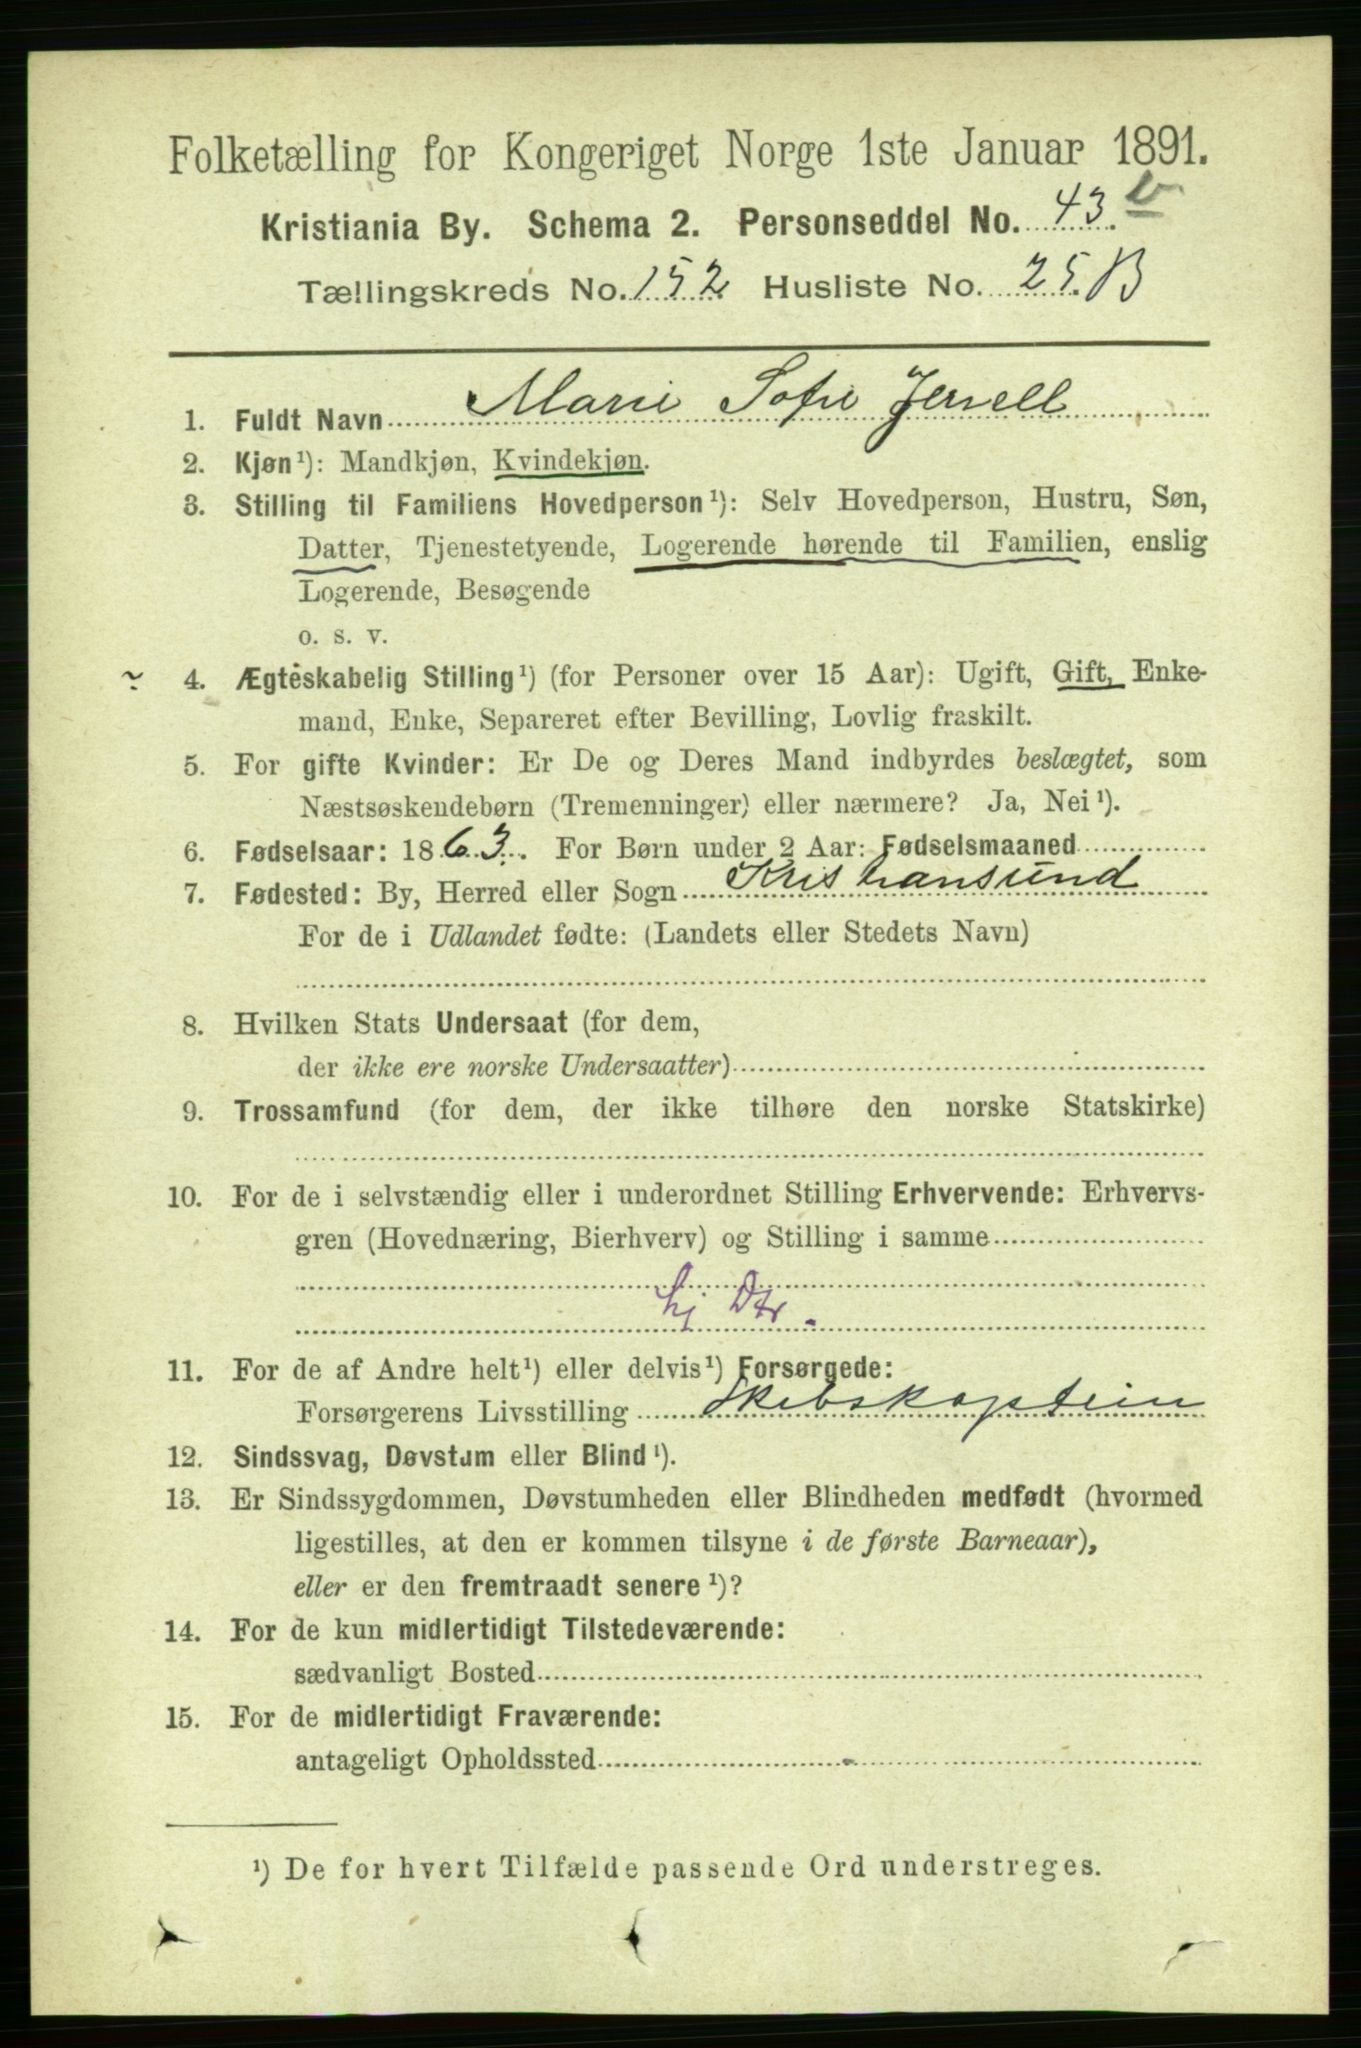 Folketælling for Kongeriget Norge 1ste Januar 1891.
Kristiania By. Schema 2. Personseddel No. 43. b
Tællingskreds No. 152 Husliste No. 25. B
1. Fuldt Navn Marie Sofie Jersell
2. Kjøn¹): Mandkjøn, Kvindekjøn.
3. Stilling til Familiens Hovedperson¹): Selv Hovedperson, Hustru, Søn,
Datter, Tjenestetyende, Logerende hørende til Familien, enslig
Logerende, Besøgende
o. s. v.
4. Ægteskabelig Stilling¹) (for Personer over 15 Aar): Ugift, Gift, Enke-
mand, Enke, Separeret efter Bevilling, Lovlig fraskilt.
5. For gifte Kvinder: Er De og Deres Mand indbyrdes beslægtet, som
Næstsøskendebørn (Tremenninger) eller nærmere? Ja, Nei¹).
6. Fødselsaar: 1863. For Børn under 2 Aar: Fødselsmaaned
7. Fødested: By, Herred eller Sogn Kristiansund
For de i Udlandet fødte: (Landets eller Stedets Navn)
8. Hvilken Stats Undersaat (for dem,
der ikke ere norske Undersaatter)
9. Trossamfund (for dem, der ikke tilhøre den norske Statskirke)
10. For de i selvstændig eller i underordnet Stilling Erhvervende: Erhvervs-
gren (Hovednæring, Bierhverv) og Stilling i samme
hj Dtr.
11. For de af Andre helt¹) eller delvis¹) Forsørgede:
Forsørgerens Livsstilling Skibskaptein
12. Sindssvag, Døvstum eller Blind¹).
13. Er Sindssygdommen, Døvstumheden eller Blindheden medfødt (hvormed
ligestilles, at den er kommen tilsyne i de første Barneaar),
eller er den fremtraadt senere¹)?
14. For de kun midlertidigt Tilstedeværende:
sædvanligt Bosted
15. For de midlertidigt Fraværende:
antageligt Opholdssted
¹) De for hvert Tilfælde passende Ord understreges.